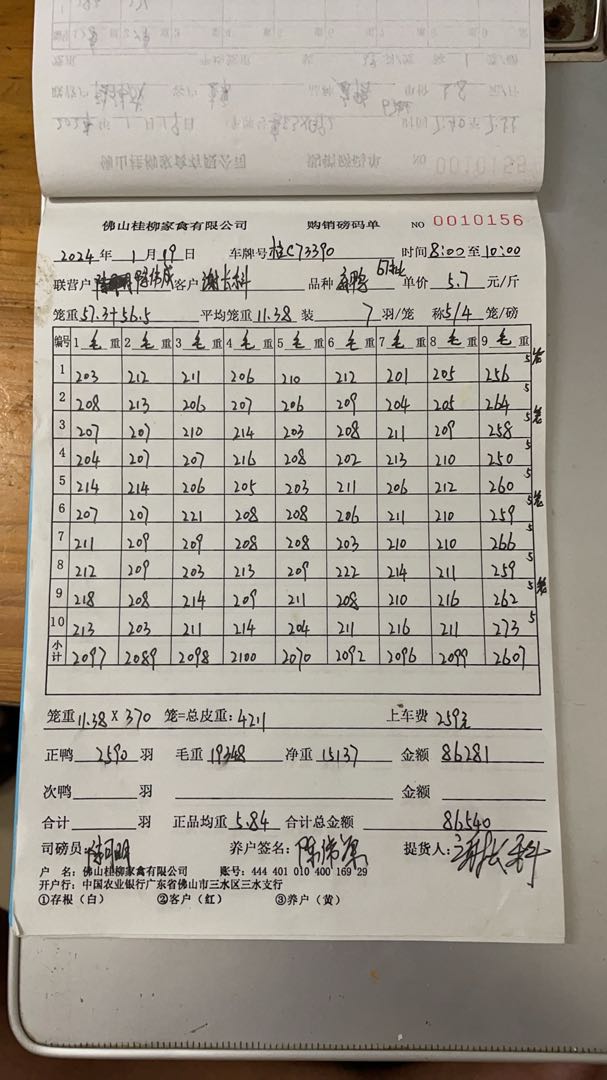 佛山桂柳家禽有限公司 购销磅码单 NO 0010156
2024 年 1 月 19 日 车牌号 桂C73390 时间 8:00 至 10:00
联营户 客户 谢长科 品种 单价 5.7 元/斤
笼重 57.3+56.5 平均笼重 11.38 装 7 羽/笼 称 5/4 笼/磅
编号 1 毛 重 2 毛 重 3 毛 重 4 毛 重 5 毛 重 6 毛 重 7 毛 重 8 毛 重 9 毛 重
1 203 212 211 206 210 212 201 205 256 5笼
2 208 213 206 207 206 209 204 205 264 5
3 207 207 210 214 203 208 211 209 258 5笼
4 204 207 207 216 208 202 213 210 250 5
5 214 214 206 205 203 211 206 212 260 5
6 207 207 221 208 208 206 211 210 259 5笼
7 211 209 209 208 208 203 210 210 266 5
8 212 209 203 213 209 222 214 211 259 5
9 218 208 214 209 211 208 210 216 262 5笼
10 213 203 211 214 204 211 216 211 273 5
小计 2097 2089 2098 2100 2070 2092 2096 2099 2607
笼重 11.38 X 370 笼=总皮重: 4211 上车费 259元
正鸭 2590 羽 毛重 19348 净重 15137 金额 86281
次鸭 羽 金额
合计 羽 正品均重 5.84 合计总金额 86540
司磅员: 养户签名: 提货人: 谢长科
户 名: 佛山桂柳家禽有限公司 账号: 444 401 010 400 169 29
开户行: 中国农业银行广东省佛山市三水区三水支行
①存根（白） ②客户（红） ③养户（黄）